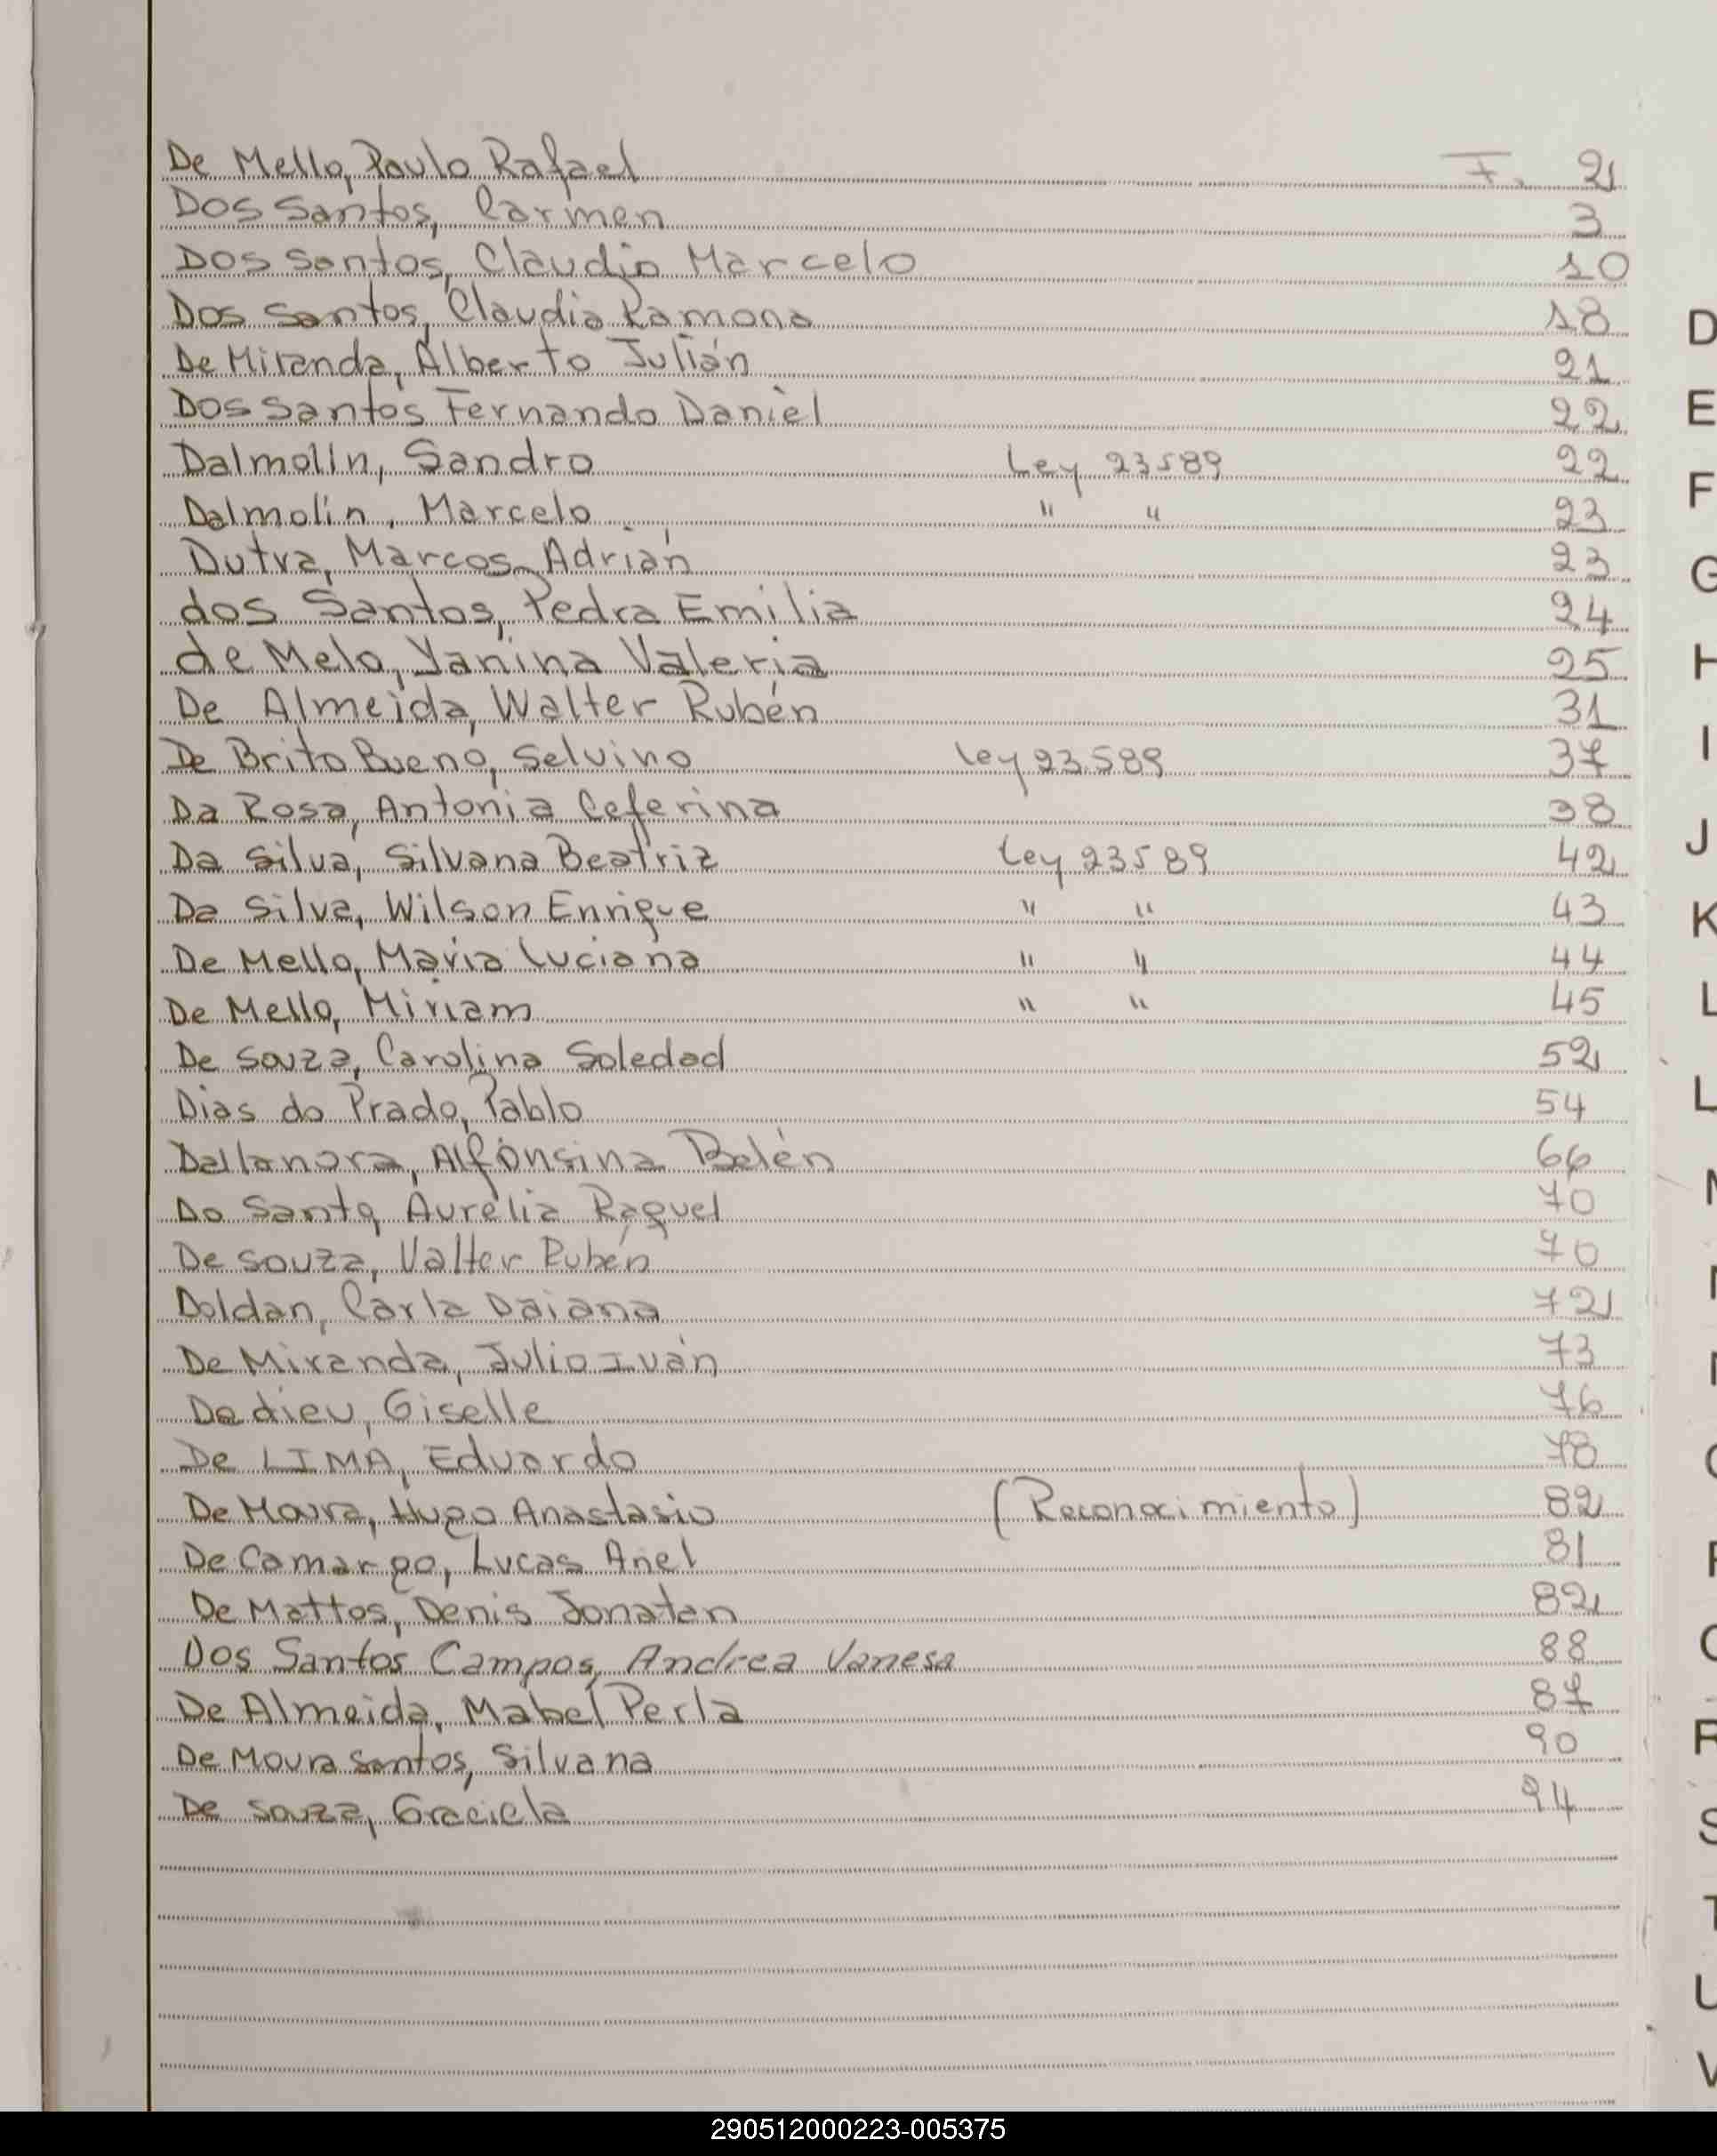 De Mello, Paulo Rafael F. 2
Dos Santos, Carmen 3
Dos Santos, Claudio Marcelo 10
Dos Santos, Claudia Ramona 18
De Miranda, Alberto Julián 21
Dos Santos Fernando Daniel 22
Dalmolin, Sandro Ley 23589 22
Dalmolin, Marcelo " " 23
Dutra, Marcos Adrián 23
dos Santos, Pedra Emilia 24
de Melo, Yanina Valeria 25
De Almeida, Walter Rubén 31
De Brito Bueno, Selvino Ley 23.589 37
Da Rosa, Antonia Ceferina 38
Da Silva, Silvana Beatriz Ley 23589 42
Da Silva, Wilson Enrique " " 43
De Mello, Maria Luciana " " 44
De Mello, Miriam " " 45
De Souza, Carolina Soledad 52
Dias do Prado, Pablo 54
Dallanora, Alfonsina Belén 66
Do Santo, Aurelia Raquel 70
De Souza, Valter Rubén 70
Doldan, Carla Daiana 72
De Miranda, Julio Iván 73
Dedieu, Giselle 76
De LIMA, Eduardo 78
De Moura, Hugo Anastasio (Reconocimiento) 82
De Camargo, Lucas Ariel 81
De Mattos, Denis Jonatan 82
Dos Santos Campos, Andrea Vanesa 88
De Almeida, Mabel Perla 87
De Moura Santos, Silvana 90
De Souza, Graciela 94
D
E
F
G
H
I
J
K
L
L
M
R
S
T
U
V
290512000223-005375